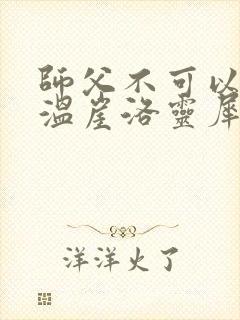 師父不可以
溫崖洛靈犀
洋洋火了